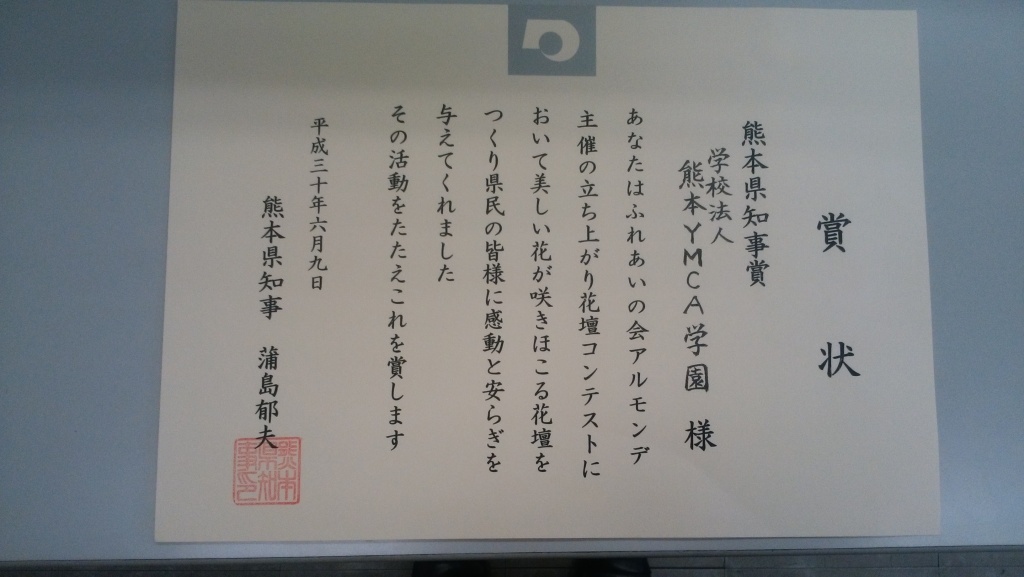 賞状
熊本県知事賞
学校法人
熊本YMCA学園 様
あなたはふれあいの会アルモンデ
主催の立ち上がり花壇コンテストに
おいて美しい花が咲きほこる花壇を
つくり県民の皆様に感動と安らぎを
与えてくれました
その活動をたたえこれを賞します
平成三十年六月九日
熊本県知事 蒲島郁夫
熊本
県知
事印